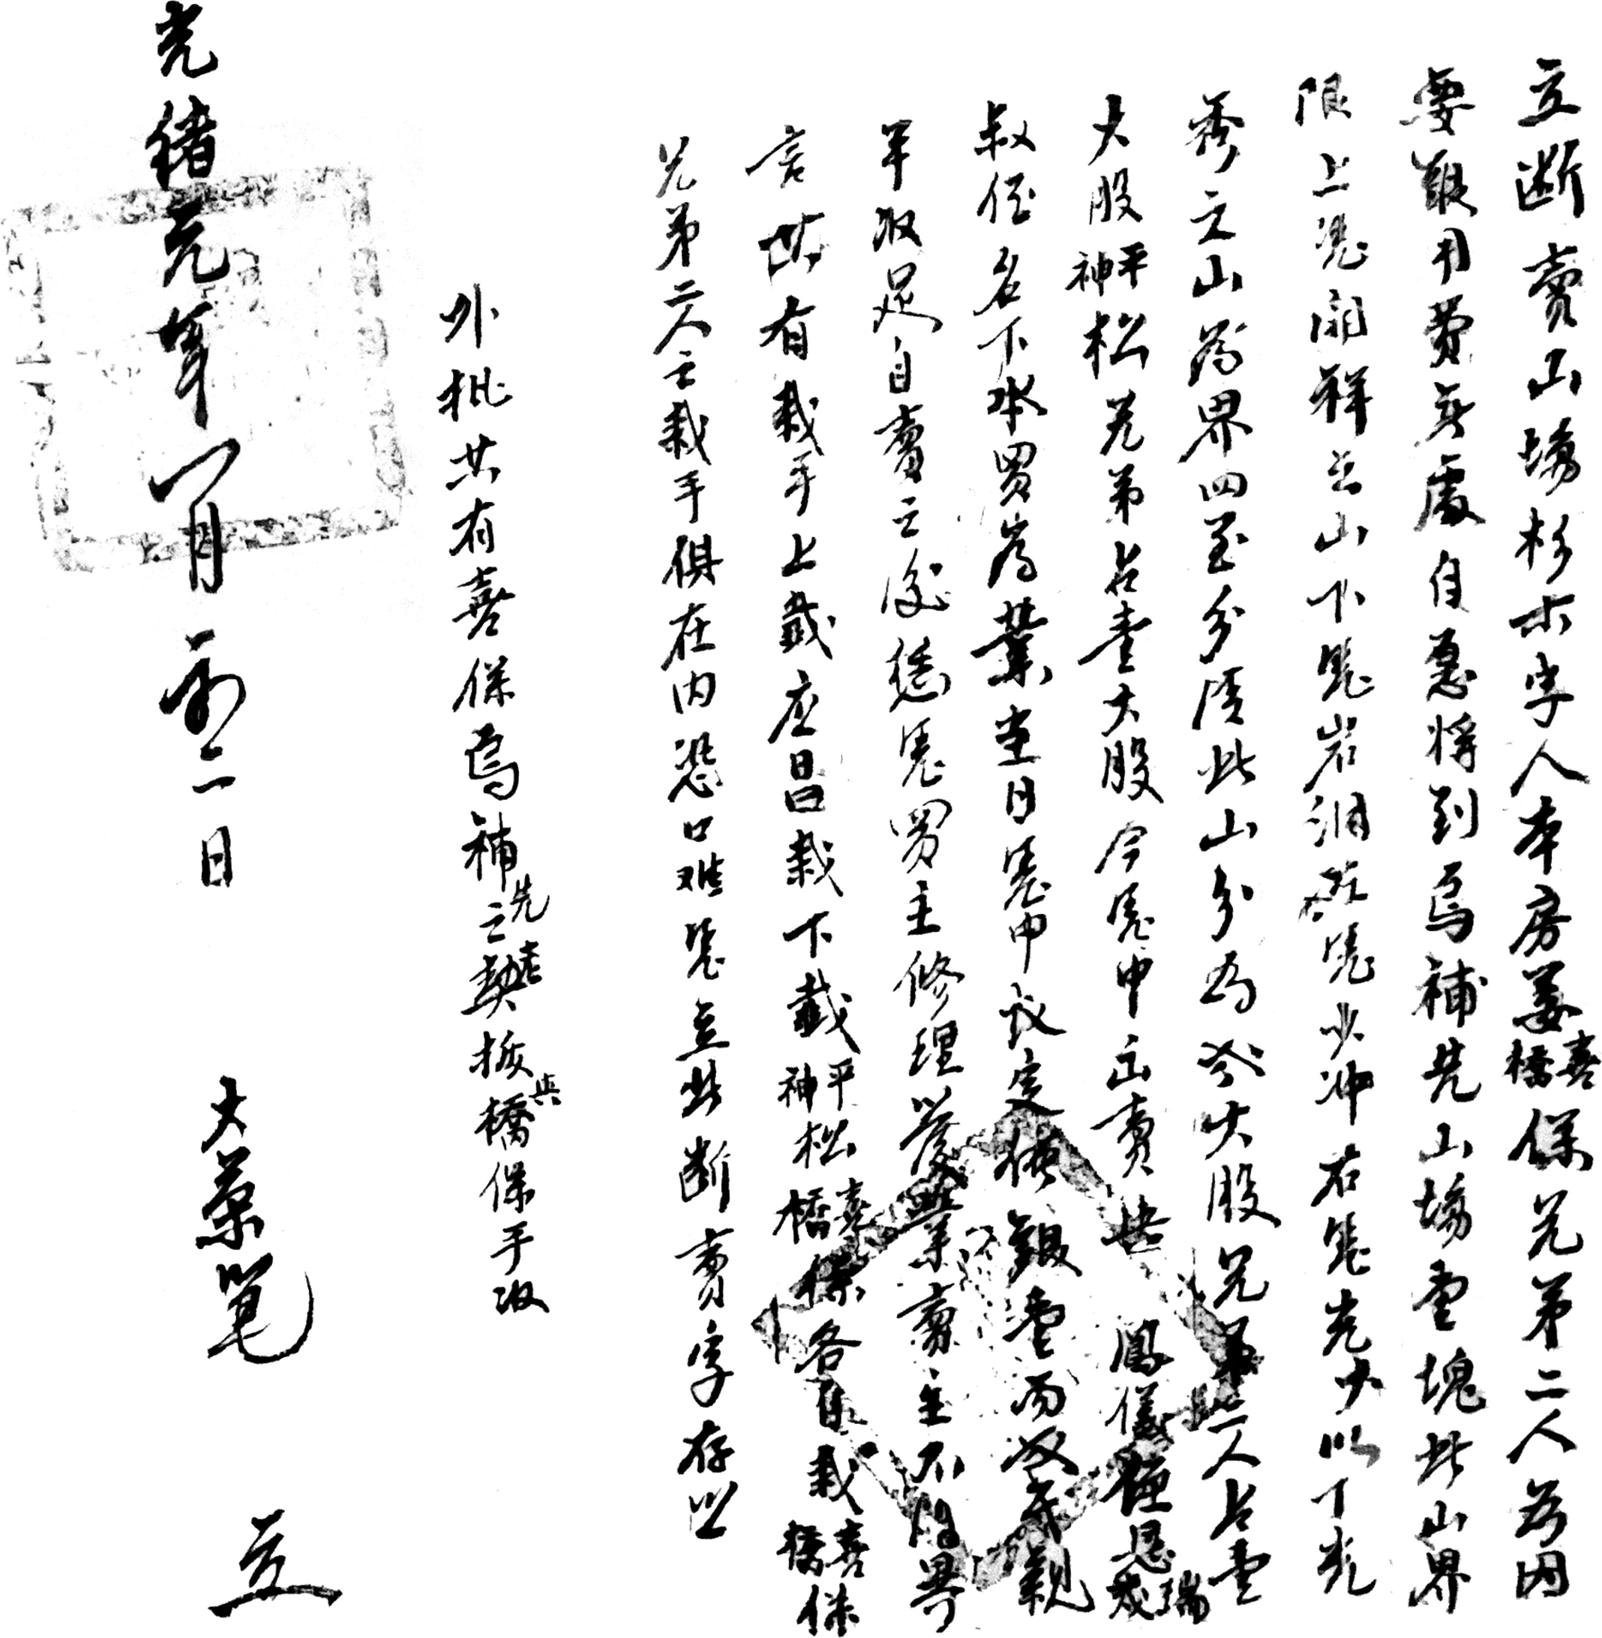 立斷賣山塲杉木字人本房姜喜橋保兄弟二人為因
要銀用費無處自愿將到烏補先山塲壹塊此山界
限上凭開祥之山下凭岩洞左凭以冲右凭光才以下光
秀之山為界四至分清此山分為大股兄弟二人占壹
大股平神松兄弟占壹大股今凭中出賣與鳳儀恩瑞
叔侄名下承買為業當日憑中議定價銀壹両親
手收足自賣之後憑買主修理管業賣主不得異
言其有栽手上截應昌栽下截平神松喜橋保各自栽喜橋保
兄弟二人之栽手俱在內恐口难凭立此断賣字存照
外批共有喜保烏補先之老契拨與橋保手收
光緒元年八月初二日 大榮筆 立